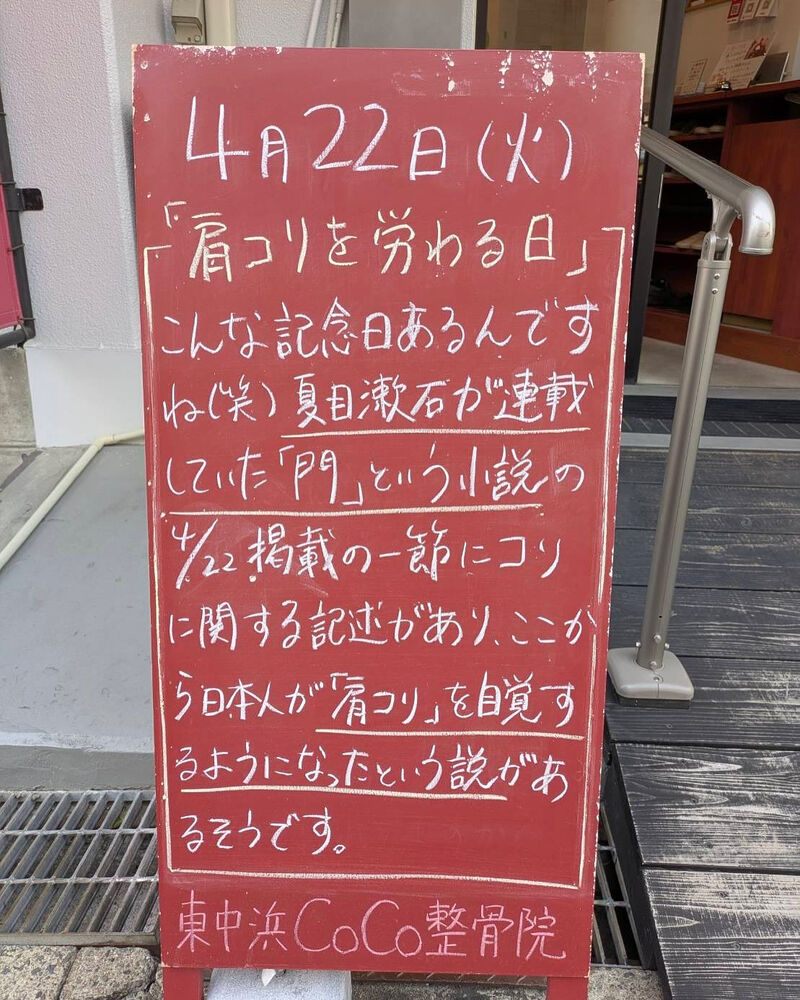 4月22日(火)
「肩コリを労わる日」
こんな記念日あるんです
ね(笑)夏目漱石が連載
していた「門」という小説の
4/22掲載の一節にコリ
に関する記述があり、ここか
ら日本人が「肩コリ」を自覚す
るようになったという説があ
るそうです。
東中浜CoCo整骨院